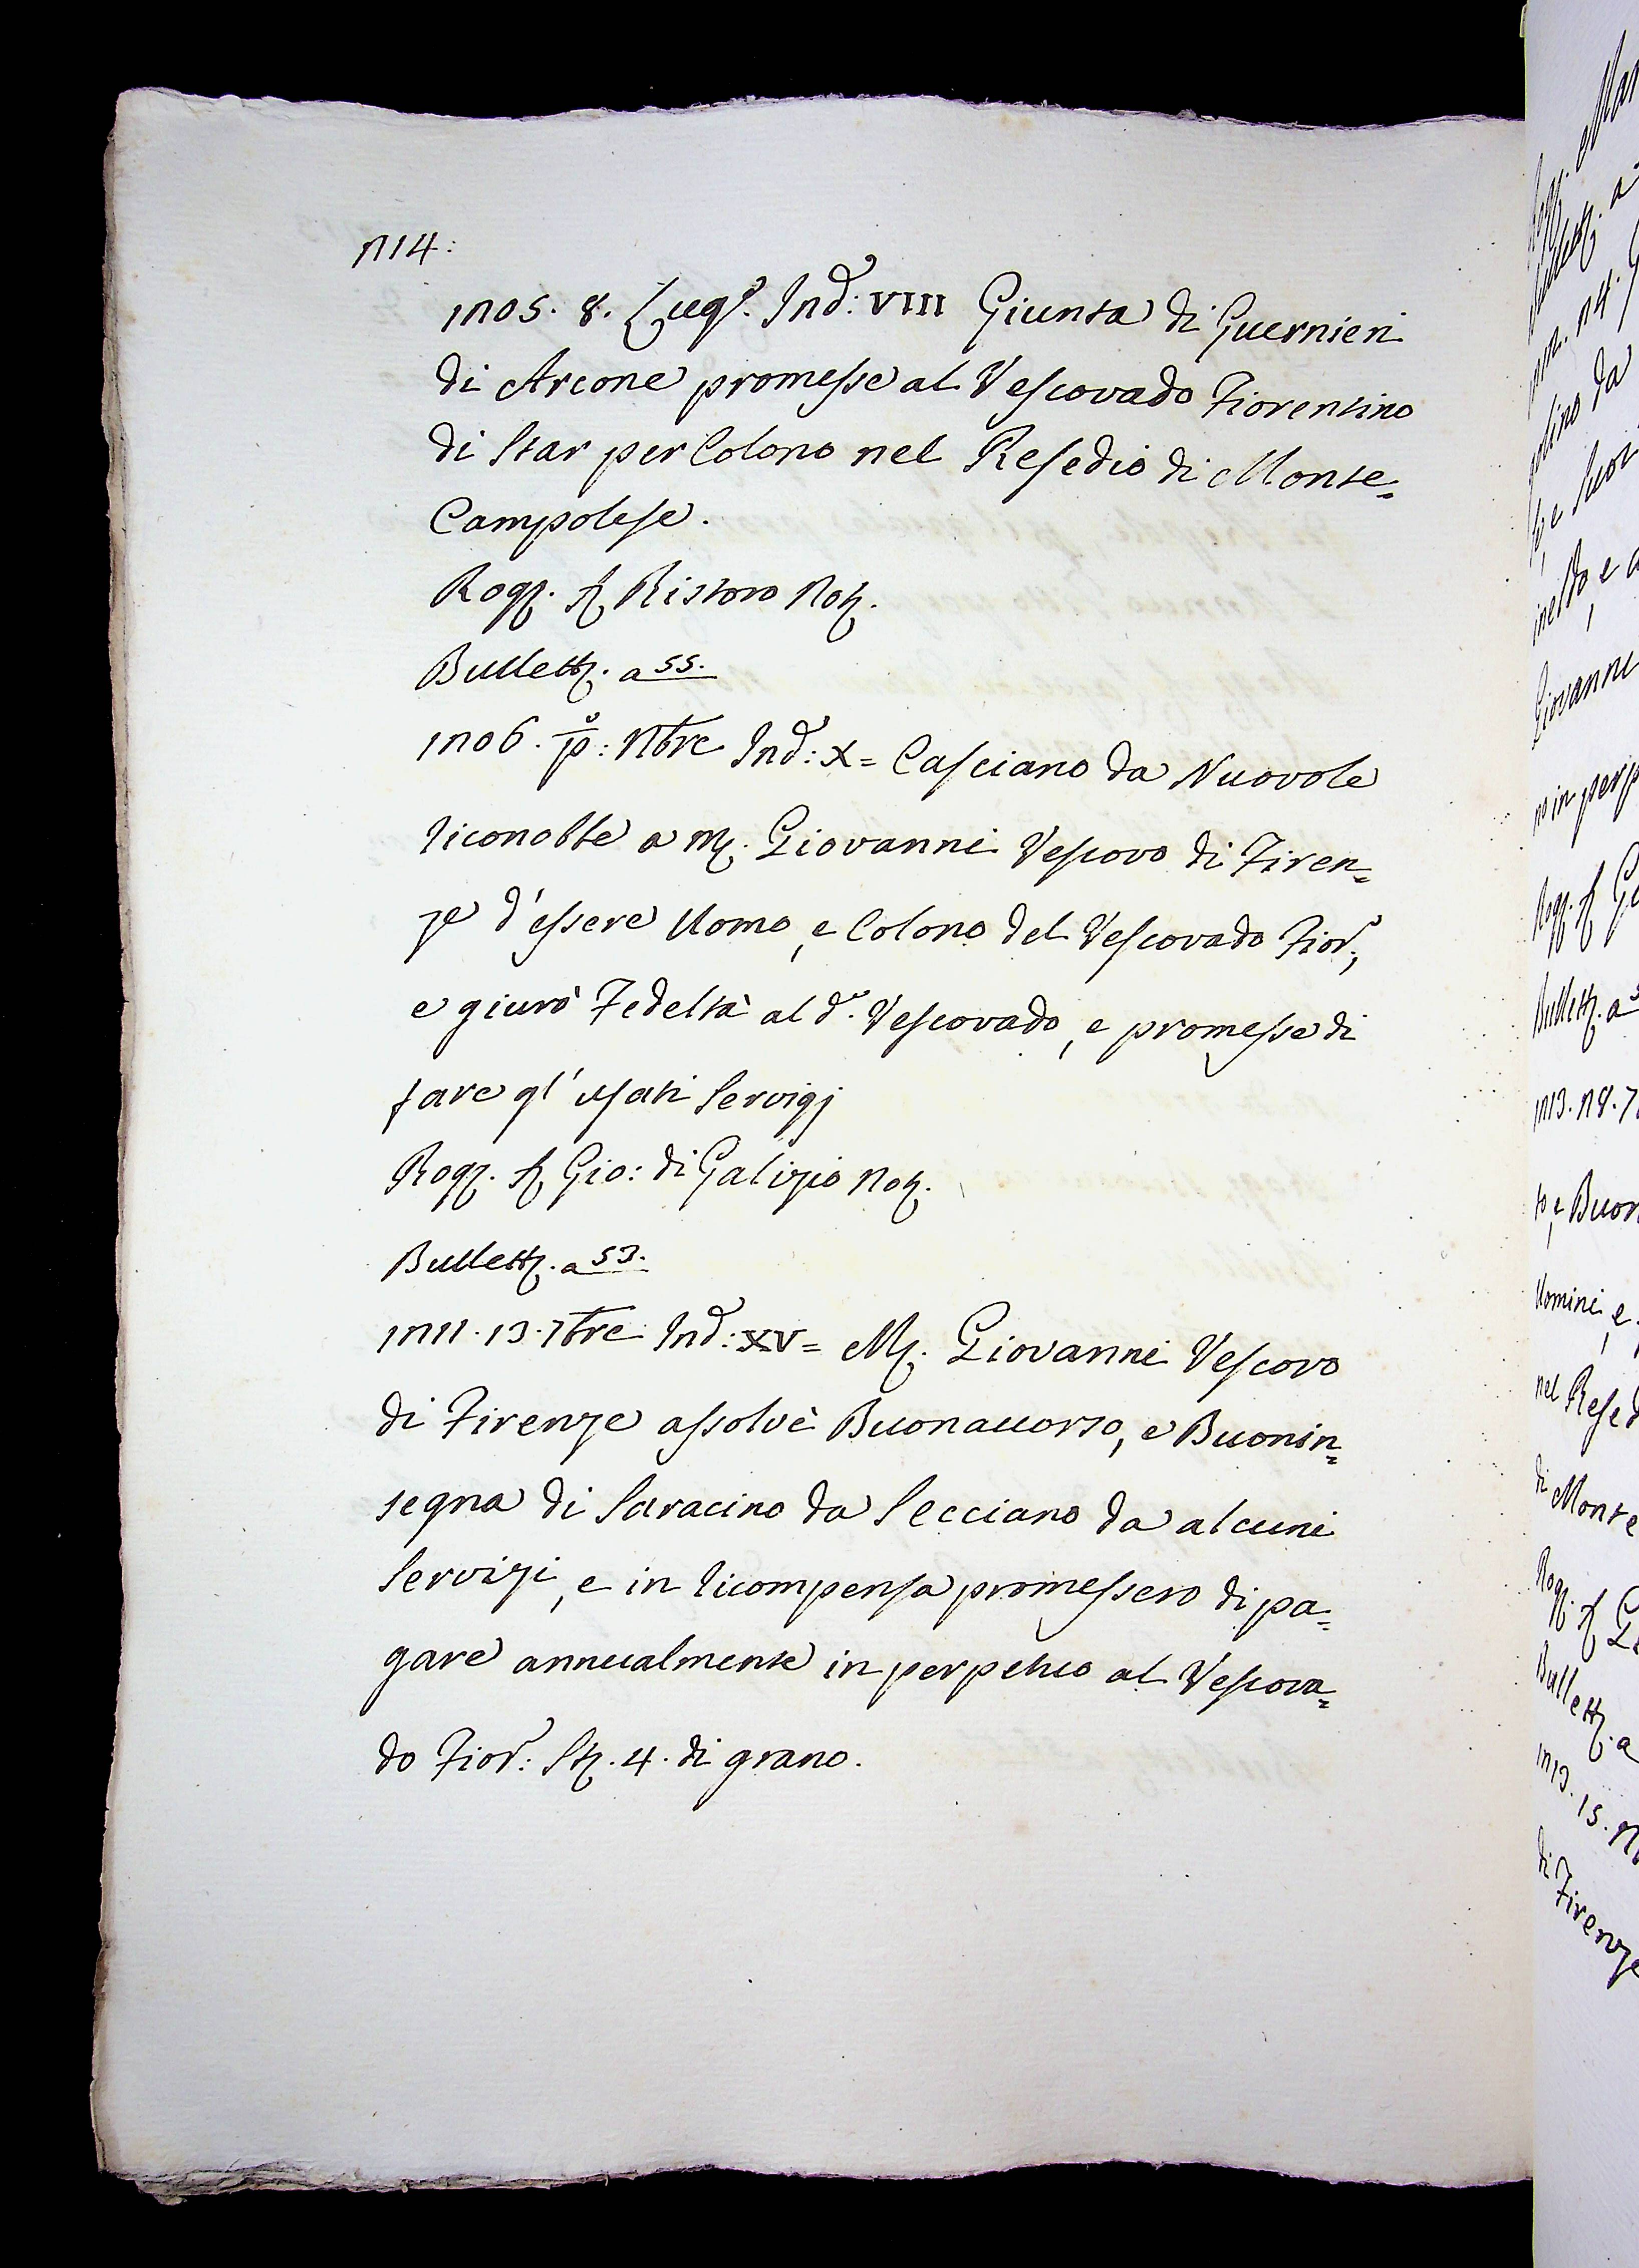 214:
1205. 8. Lug.º Ind: VIII Giunta di Guernieri
di Arcone promesse al Vescovado Fiorentino
di star per Colono nel Resedio di Monte=
Campolese.
Rog. S. Ristoro Not.
Bullett. a 55.
1206. p.º: Nbre Ind: X= Casciano da Nuovole
riconobbe a M. Giovanni Vescovo di Firen=
ze d'essere Uomo, e Colono del Vescovado Fior.;
e giurò Fedeltà al d.º Vescovado, e promesse di
fare gl'usati Servigj
Rog. S. Gio: di Galizio Not.
Bullett. a 53.
1211. 13. 7bre Ind: XV= M. Giovanni Vescovo
di Firenze assolvè Buonaccorso, e Buonin=
segna di Saracino da Secciano da alcuni
Servizi, e in ricompensa promessero di pa=
gare annualmente in perpetuo al Vescova=
do Fior: St. 4. di grano.
Giovanni
no in perp
Bullett. a
to, e Buon
Uomini, e
nel Resed
di Monte
Bullett. a
di Firenze